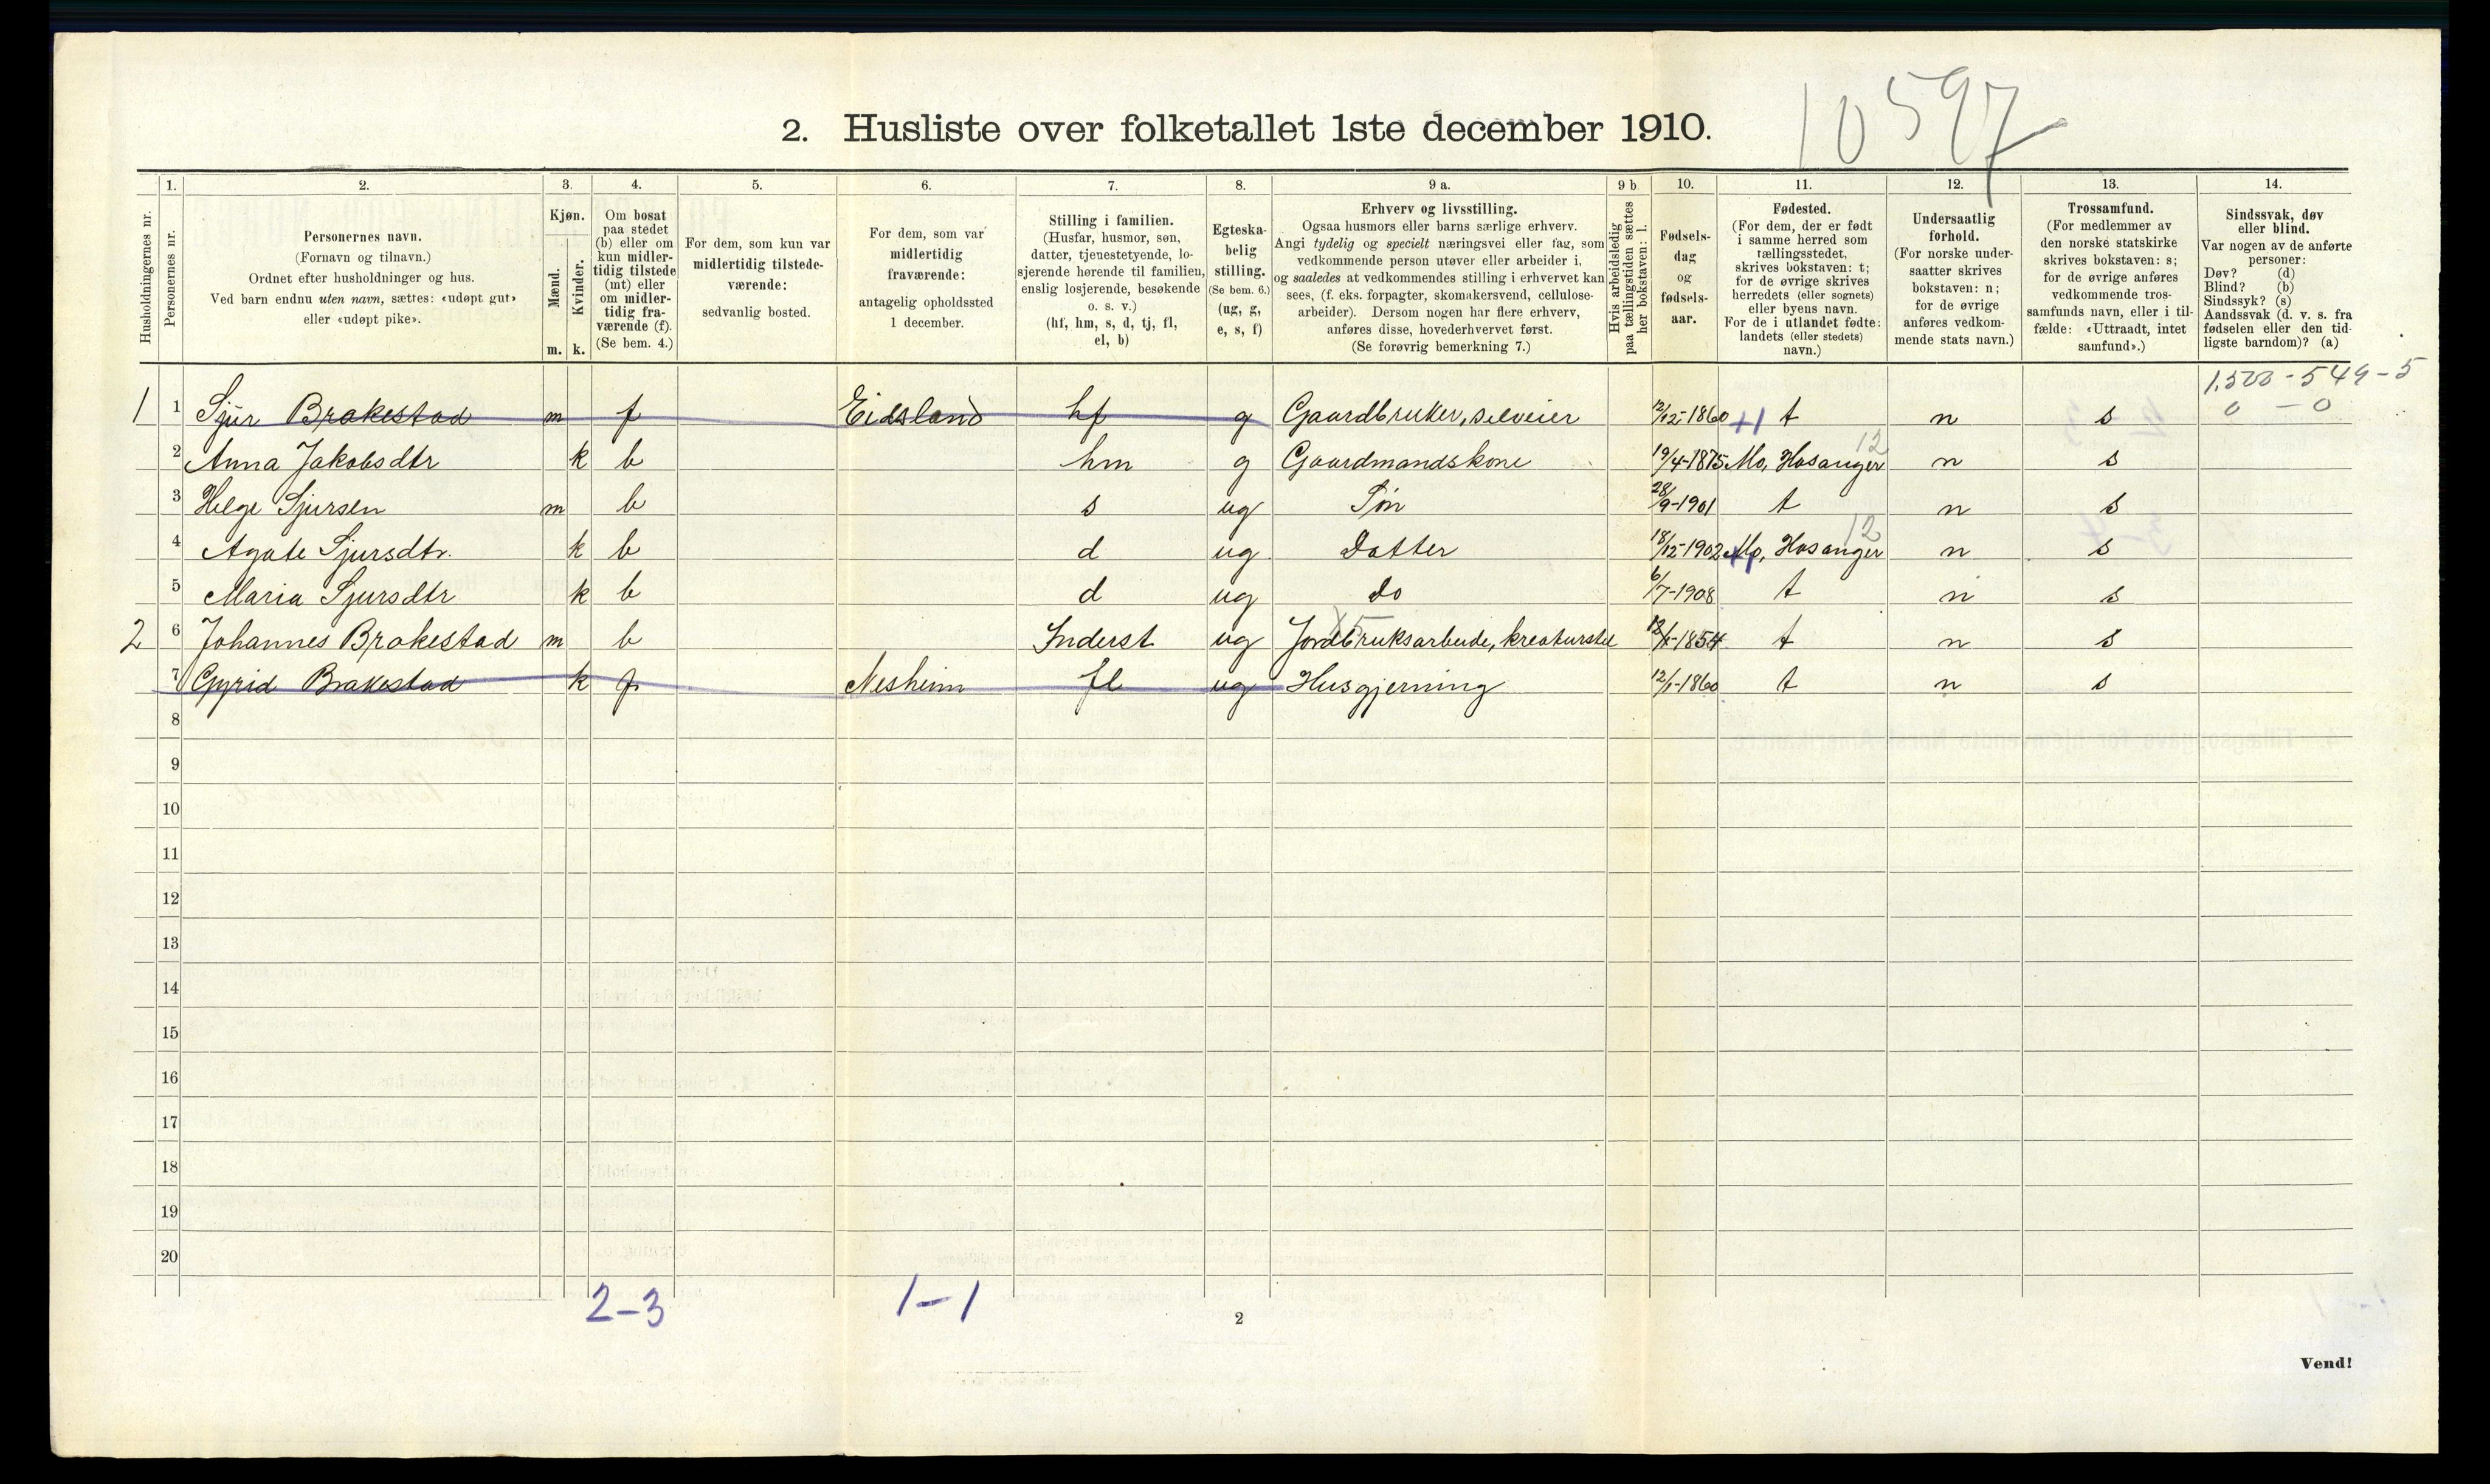 10597
2. Husliste over folketallet 1ste december 1910.
Husholdningernes nr.
1. Personernes nr.
2. Personernes navn.
(Fornavn og tilnavn.)
Ordnet efter husholdninger og hus.
Ved barn endnu uten navn, sættes: «udøpt gut»
eller «udøpt pike».
3. Kjøn.
Mænd. Kvinder.
m. k.
4. Om bosat
paa stedet
(b) eller om
kun midler-
tidig tilstede
(mt) eller
om midler-
tidig fra-
værende (f).
(Se bem. 4.)
5. For dem, som kun var
midlertidig tilstede-
værende:
sedvanlig bosted.
6. For dem, som var
midlertidig
fraværende:
antagelig opholdssted
1 december.
7. Stilling i familien.
(Husfar, husmor, søn,
datter, tjenestetyende, lo-
sjerende hørende til familien,
enslig losjerende, besøkende
o. s. v.)
(hf, hm, s, d, tj, fl,
el, b)
8. Egteska-
belig
stilling.
(Se bem. 6.)
(ug, g,
e, s, f)
9 a. Erhverv og livsstilling.
Ogsaa husmors eller barns særlige erhverv.
Angi tydelig og specielt næringsvei eller fag, som
vedkommende person utøver eller arbeider i,
og saaledes at vedkommendes stilling i erhvervet kan
sees, (f. eks. forpagter, skomakersvend, cellulose-
arbeider). Dersom nogen har flere erhverv,
anføres disse, hovederhvervet først.
(Se forøvrig bemerkning 7.)
9 b. Hvis arbeidsledig
paa tællingstiden sættes
her bokstaven: l.
10. Fødsels-
dag
og
fødsels-
aar.
11. Fødested.
(For dem, der er født
i samme herred som
tællingsstedet,
skrives bokstaven: t;
for de øvrige skrives
herredets (eller sognets)
eller byens navn.
For de i utlandet fødte:
landets (eller stedets)
navn.)
12. Undersaatlig
forhold.
(For norske under-
saatter skrives
bokstaven: n;
for de øvrige
anføres vedkom-
mende stats navn.)
13. Trossamfund.
(For medlemmer av
den norske statskirke
skrives bokstaven: s;
for de øvrige anføres
vedkommende tros-
samfunds navn, eller i til-
fælde: «Uttraadt, intet
samfund».)
14. Sindssvak, døv
eller blind.
Var nogen av de anførte
personer:
Døv? (d)
Blind? (b)
Sindssyk? (s)
Aandssvak (d. v. s. fra
fødselen eller den tid-
ligste barndom)? (a)
1.500 - 549 - 5
0 - 0
1 1 Sjur Brakestad m f Eidsland hf g Gaardbruker, selveier 12/12-1860 +1 t n s
2 Anna Jakobsdtr k b hm g Gaardmandskone 19/4-1875 Mo, Hosanger 12 n s
3 Helge Sjursen m b s ug Søn 28/9-1901 t n s
4 Agate Sjursdtr. k b d ug Datter 18/12-1902 Mo, Hosanger 12 n s
5 Maria Sjursdtr k b d ug do 6/7-1908 t n s
2 6 Johannes Brakestad m b Inderst ug Jordbruksarbeide, kreaturstel -1854 t n s
7 Gyrid Brakestad k f Nesheim fl ug Husgjerning 12/1-1860 t n s
8
9
10
11
12
13
14
15
16
17
18
19
20
2-3 1-1
2
Vend!